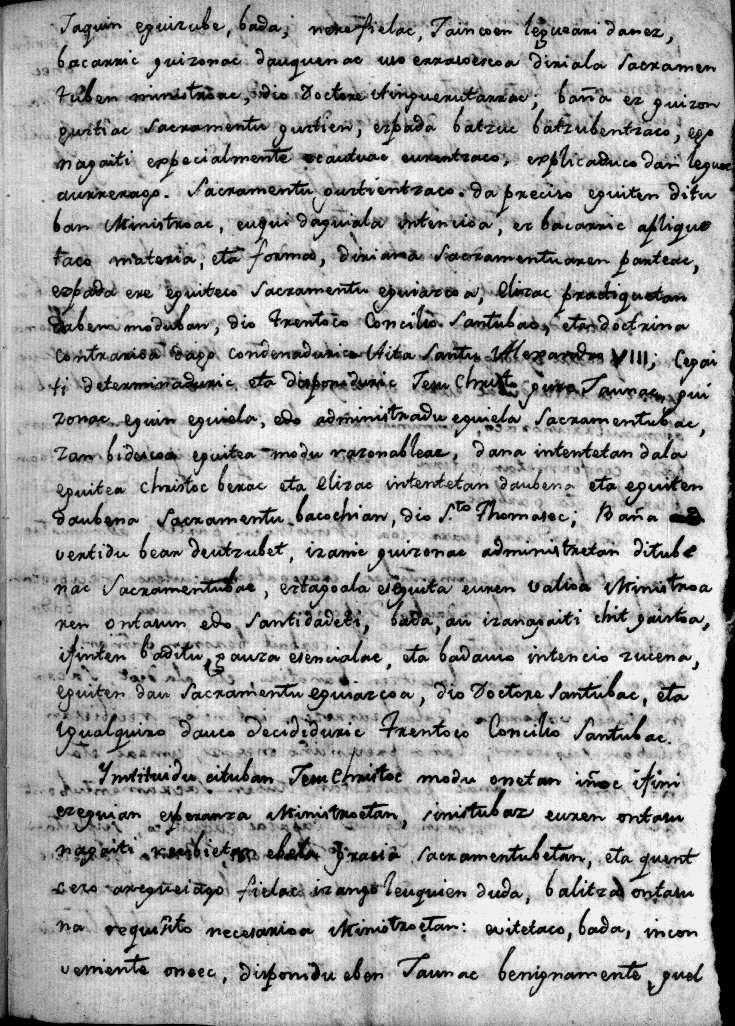 Jaquin eguizube, bada, nere fielac, Jaincoen legueari danez,
bacarric guizonac dauquenac uso errazoezcoa diriala Sacramen
tuben ministroac, dio Doctore Ainguerutarrac; baña ez guizon
guztiac Sacramentu guztien, ezpada batzuc batzubentzaco, ego
nagaiti expecialmente eurentzaco, explicaduco dan leguez
aurrerago. Sacramentu guztientzaco da preciso eguiten ditu
ban Ministroac, euqui daguiala intencioa, ez bacarric aplique
taco materia, eta forma, diriana Sacramentuaren parteac,
ezpada ere eguiteco Sacramentu eguiazcoa, Elizac practiquetan
daben moduban, dio Trentoco Concilio Santubac, eta doctrina
contrarioa dago condenaduric Aita Santu Alexandro VIII; Cegai
ti determinaduric eta disponiduric Jesu Christo gure Jaunac, gui
zonac eguin eguiela, edo administradu eguiela Sacramentubac,
zan bidezcoa eguitea modu razonableaz, dana intentetan dala
eguitea Christoc berac eta Elizac intentetan daubena eta eguiten
daubena Sacramentu bacochian, dio S.to Thomasec; Baña ad
vertidu bear deutzubet, izanic guizonac administretan ditube
nac Sacramentubac, eztagoala eseguita euren valioa Ministroa
ren ontasun edo santidadeti, bada, au izanagaiti chit gaistoa,
ifinten baditu, gauza esencialac, eta badauco intencio zucena,
eguiten dau Sacramentu eguiazcoa, dio Doctore Santubac, eta
igualquiro dauco decididuric Trentoco Concilio Santubac.
Ynstituidu cituban Jesu Christoc modu onetan iñoc ifini
ezeguian esperanza Ministroetan, sinistubaz euren ontasu
nagaiti recibietan ebela gracia Sacramentubetan, eta quent
cero aregueiago fielac izango leuquien duda, balitza ontasu
na requisito necesarioa Ministroetan: evitetaco, bada, incon
veniente oneec, disponidu eben Jaunac benignamente, guel